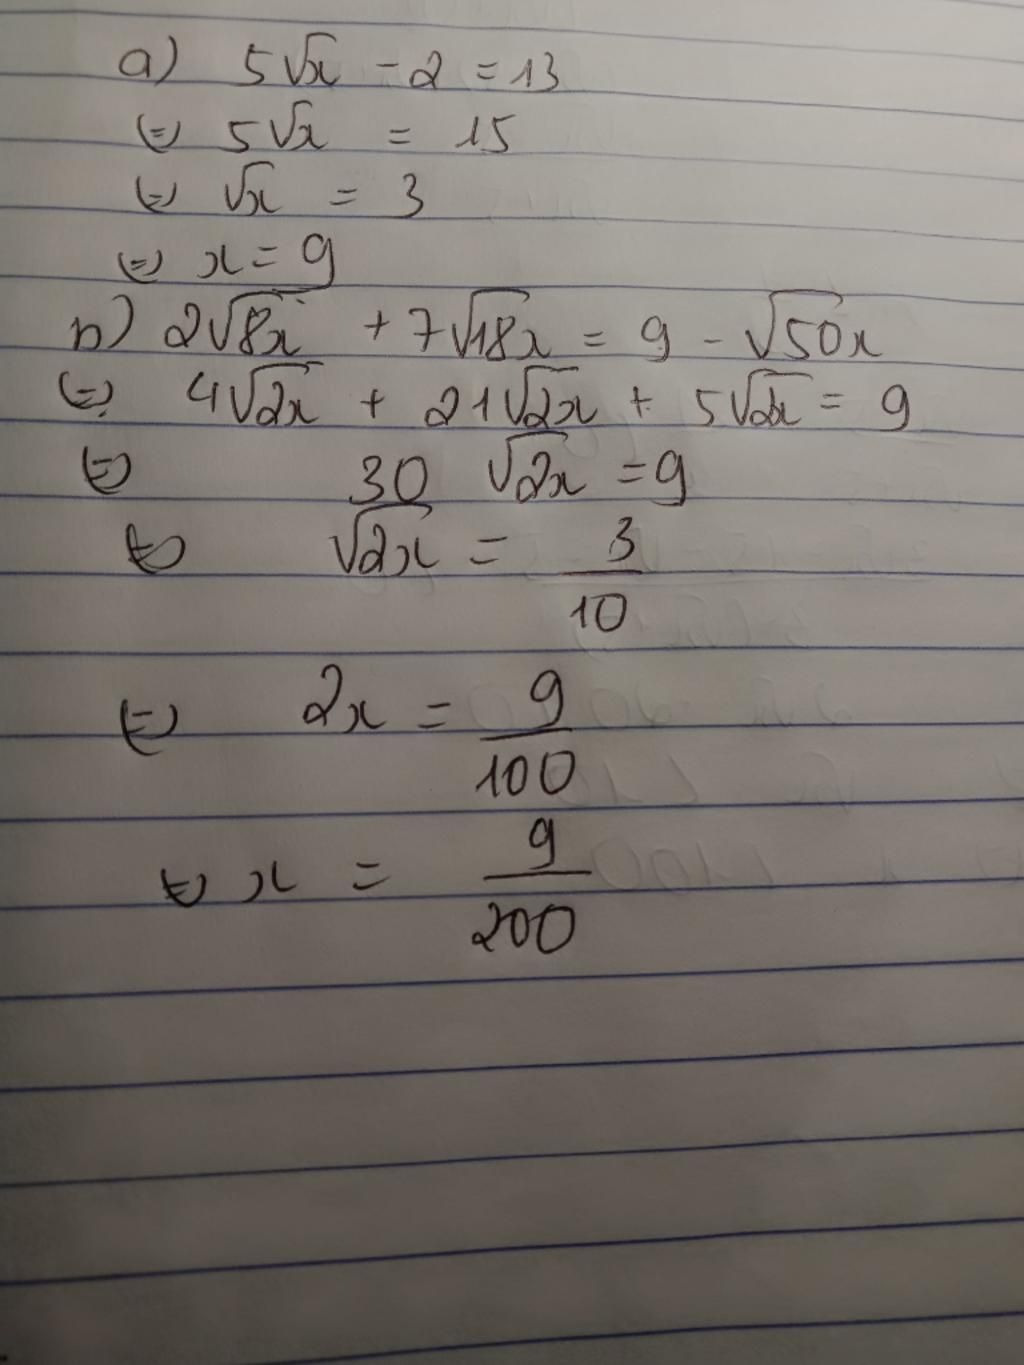 a) 5√x - 2 = 13
(=) 5√x = 15
(=) √x = 3
(=) x = 9
b) 2√8x + 7√18x = 9 - √50x
(=) 4√2x + 21√2x + 5√2x = 9
(=) 30 √2x = 9
(=) √2x = 3/10
(=) 2x = 9/100
(=) x = 9/200